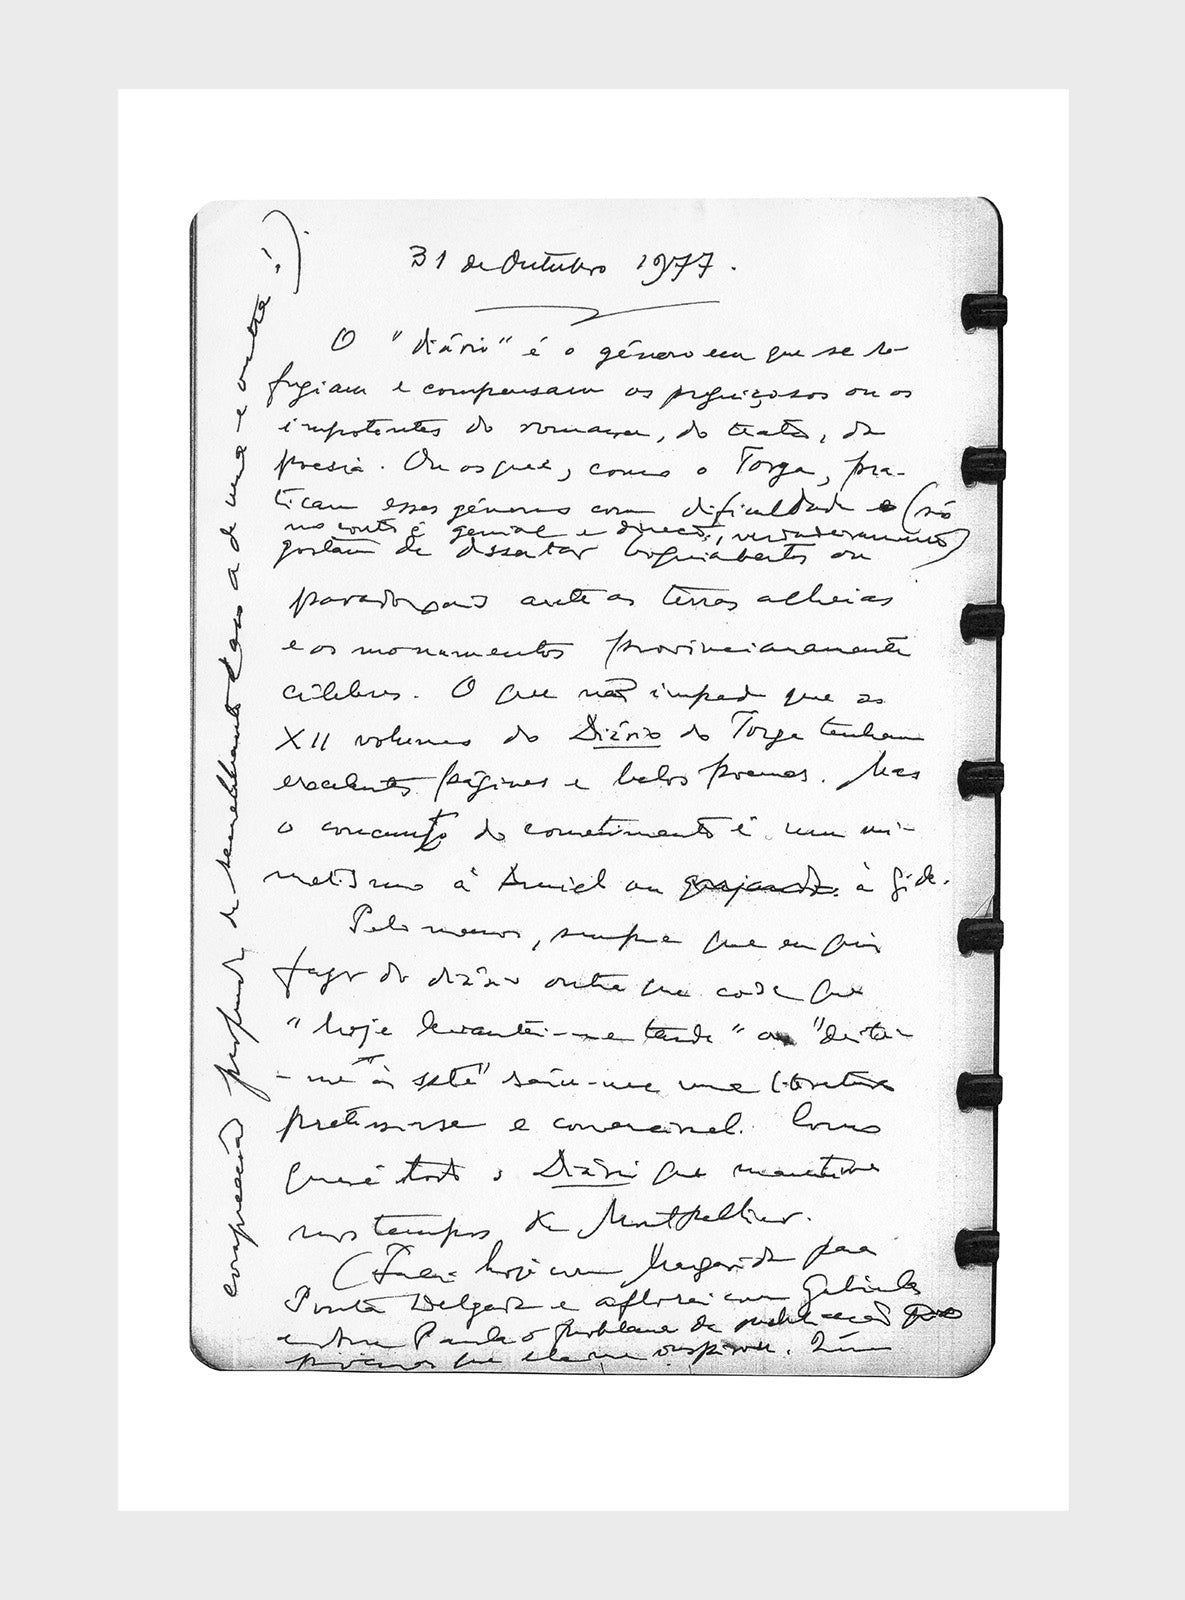 31 de Outubro 1977.
O "diário" é o género em que se re-
fugiam e compensam os preguiçosos ou os
impotentes do romance, do teatro, da
poesia. Ou os que, como o Torga, pra-
ticam esses géneros com dificuldade e (só
no conto é genial e directo, verdadeiramente)
gostam de dissertar boquiabertos ou
paradoxais ante as terras alheias
e os monumentos provincianamente
célebres. O que não impede que os
XII volumes do Diário do Torga tenham
excelentes páginas e belos poemas. Mas
o conjunto do cometimento é um mi-
metismo à Amiel ou à Gide.
Pelo menos, sempre que eu quis
fazer do diário outra coisa que
"hoje levantei-me tarde" ou "deitei-
-me às sete" saiu-me uma literatura
pretensiosa e convencional. Como
quase todo o Diário que mantive
nos tempos de Montpellier.
(Falei hoje com Margarida para
Ponta Delgada e aflorei com Gabriela
entre Paula o problema da publicação
poemas que ela me inspirou. Têm
compreensão profunda de semelhante de uma e outra!).